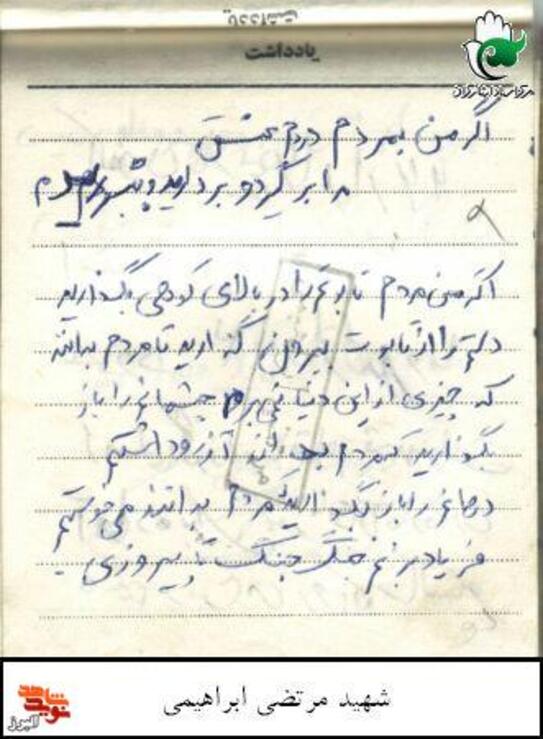 یادداشت
یادداشت
اگر من بمردم در دم عشق
مرا بر گرد و بردارید و شهر
اگر من مردم تابوتم را در بالای کوهی بگذارید
دستم را از تابوت بیرون گزارید تا مردم بدانند
که چیزی از این دنیا نمی‌برم چشمانم را باز
بگذارید که مردم بدانند آرزو داشتم
دهانم را باز بگذارید که مردم بدانند می‌خواستم
فریاد بزنم جنگ جنگ تا پیروزی
شهید مرتضی ابراهیمی
نوید شاهد
البرز